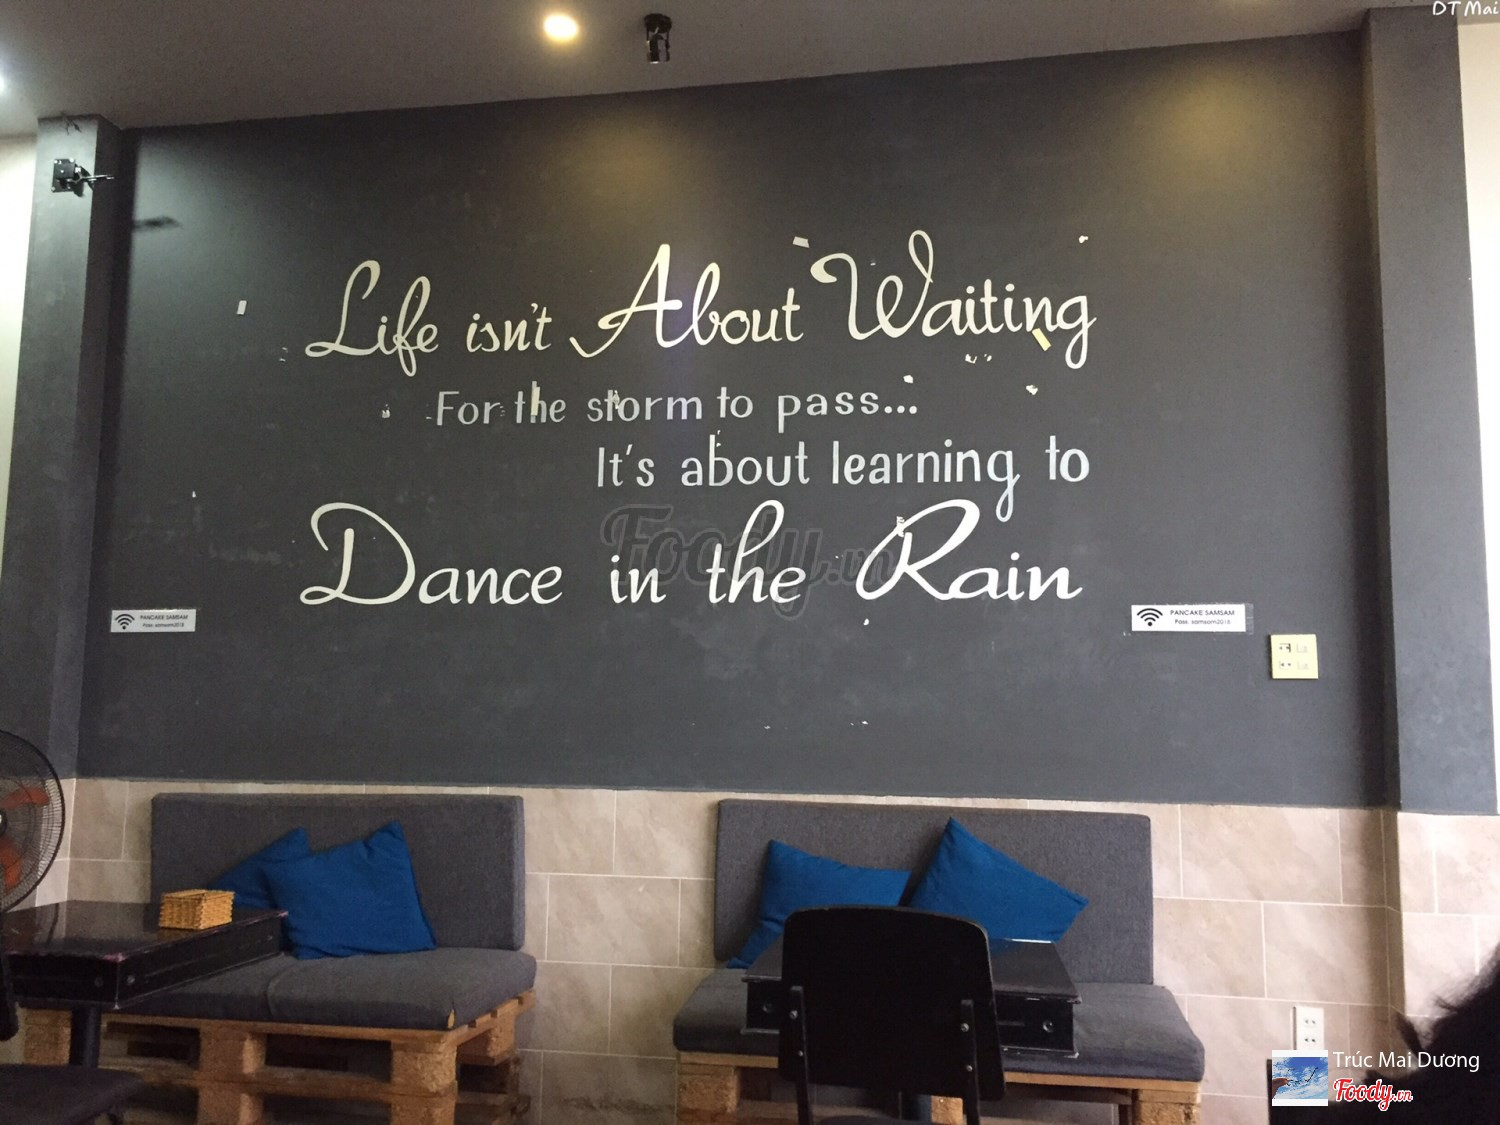 DT Mai
Life isn't About Waiting
For the storm to pass...
It's about learning to
Dance in the Rain
Foody.vn
PANCAKE SAMSAM
Pass: samsam2018
PANCAKE SAMSAM
Pass: samsam2018
Trúc Mai Dương
Foody.vn